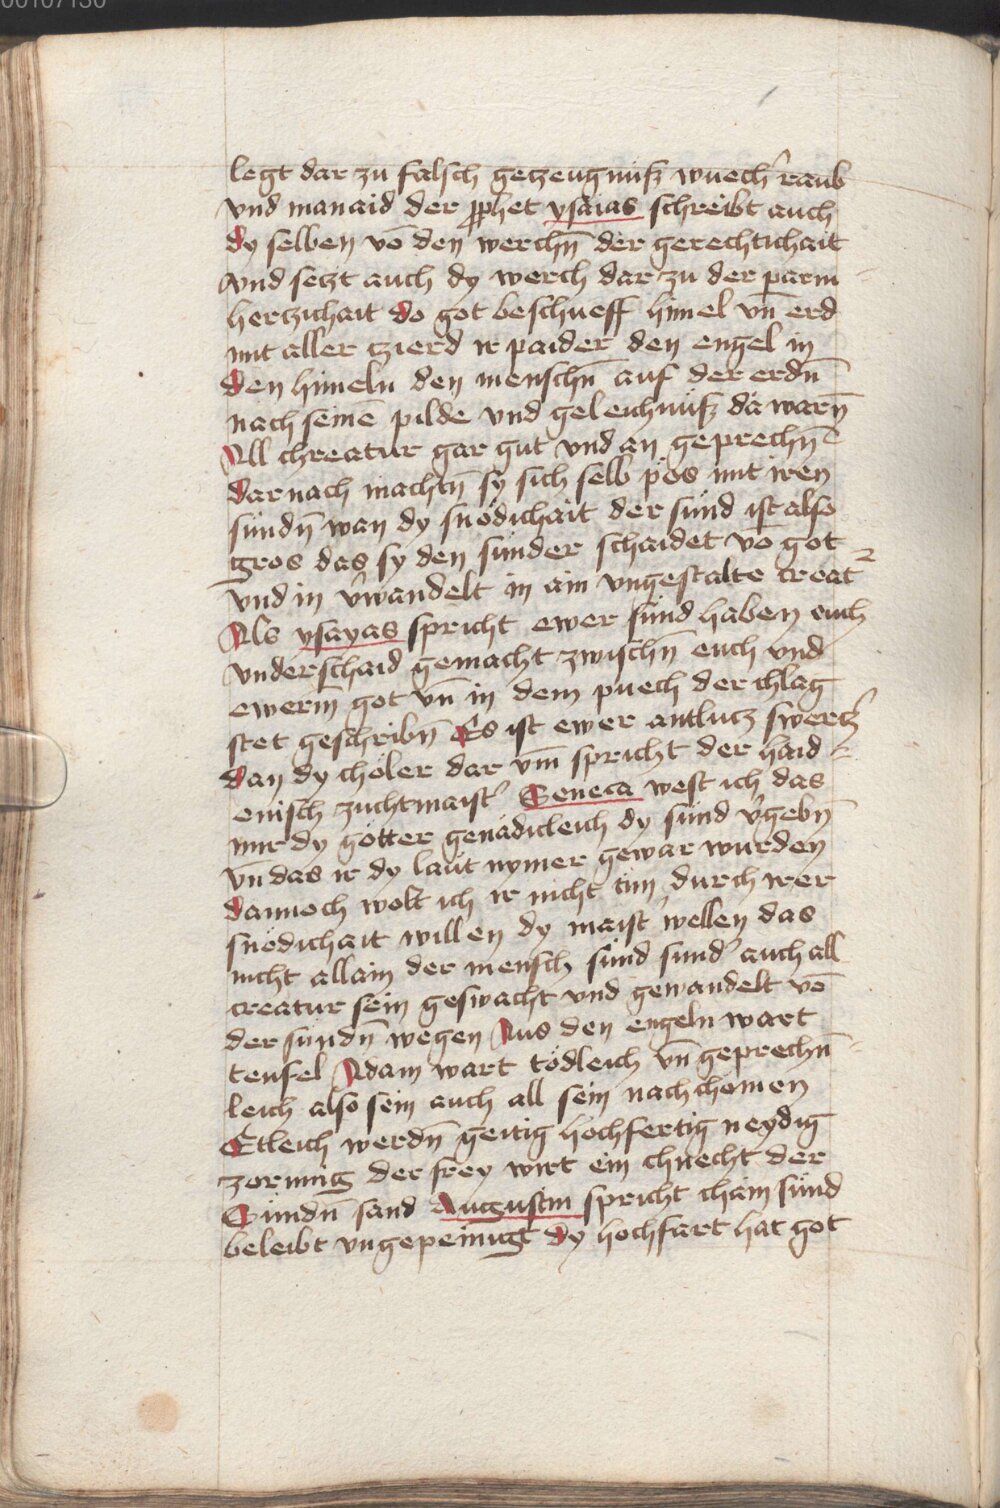 00107130
legt dar zu falsch getzeugnuß wuech̄ raub
vnd manaid der ꝓphet ysaias schreibt auch
dy selben vō den werchn̄ der gerechtichait
vnd seczt auch dy werch dar zu der parm⸗
hertzichait do got beschueff himel vn̄ erd
mit aller tzierd ir paider den engel in
den himeln den menschn̄ auf der erdn̄
nach seinē pilde vnd geleichnuß da warn̄
All chreatur gar gut vnd an geprechn̄
dar nach machtn̄ sy sich selb pös mit iren
sundn̄ wan dy snödichait der sund ist also
gros das sy den sunder schaidet vō got
vnd in v̄wandelt in ain vngestalte creat᷑
Als ysayas spricht ewer sund haben euch
vnderschaid gemacht zwischn̄ euch vnd
ewerm got vn̄ in dem puech der chlag
stet geschribn̄ Es ist ewer antlucz swertz̄
dan dy choler dar vm̄ spricht der haid⸗
enisch zuchtmaist̄ Seneca west ich das
mir dy götter genädicleich dy sund v̄gebn̄
vn̄ das ir dy laüt nymer gewar wurden
dannoch wolt ich ir nicht tun durch irer
snödichait willen dy maist̄ wellen das
nicht allain der mensch sünd sund̄ auch all
creatur sein geswacht vnd gewandelt vō
der sundn̄ wegen Aus den engeln wart
teufel Adam wart tödleich vn̄ geprechn̄⸗
leich also sein auch all sein nachchomen
Etleich werdn̄ geitig hochfertig neydig
zornnig der frey wirt ein chnecht der
Sundn̄ sand Augustin spricht chain sünd
beleibt vngepeinigt dy hochfart hat got